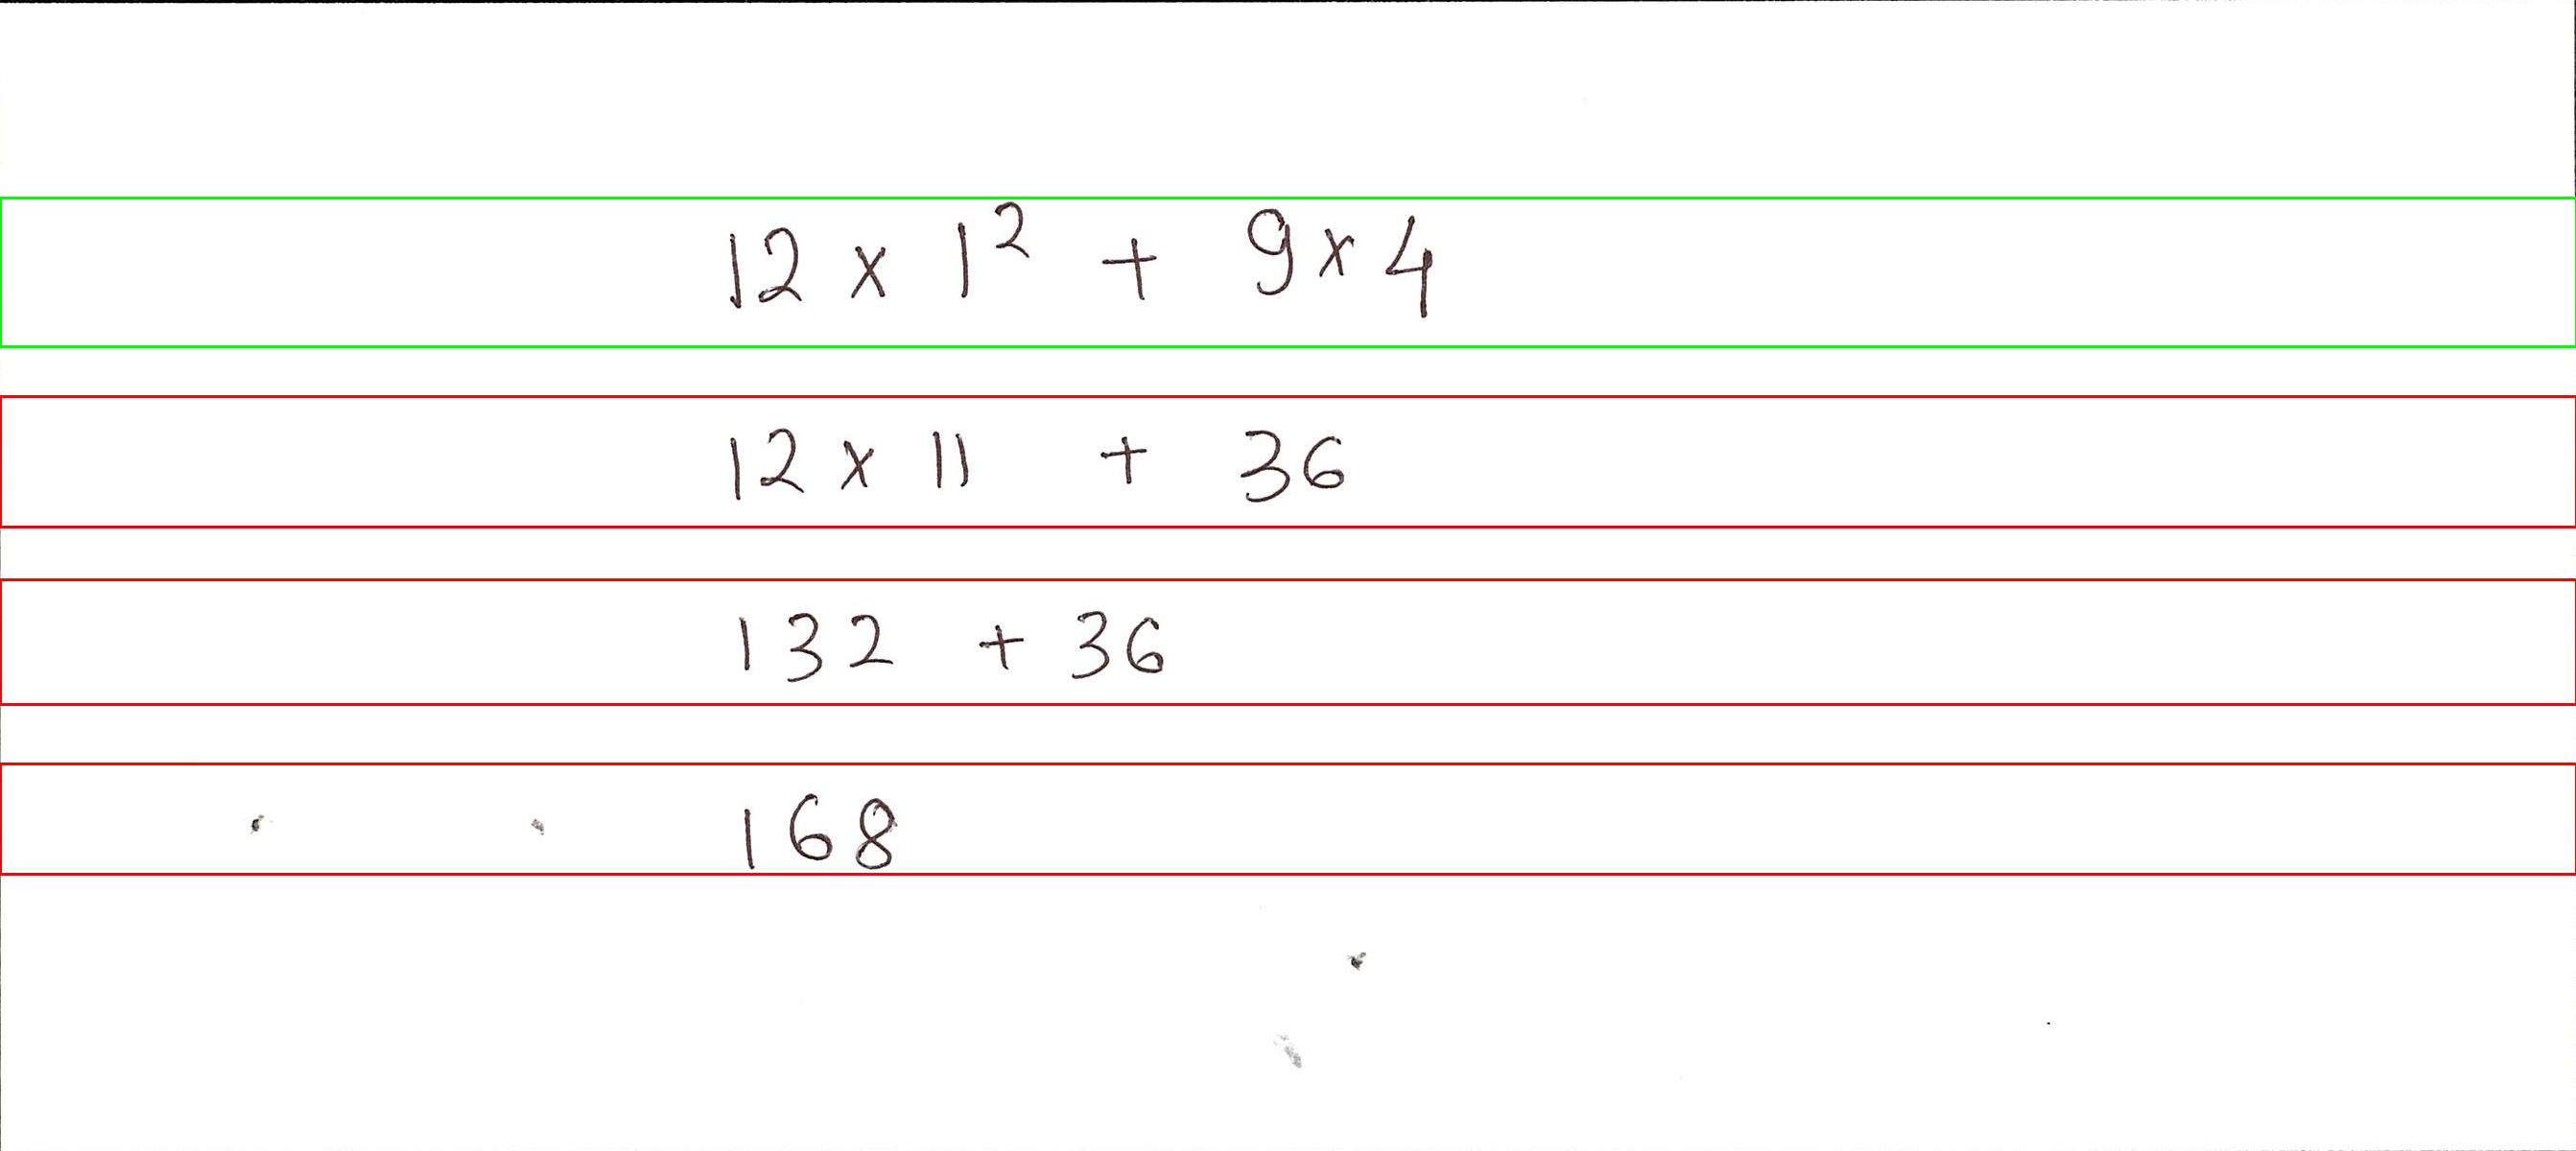 12 x 1² + 9 x 4
12 x 11 + 36
132 + 36
168